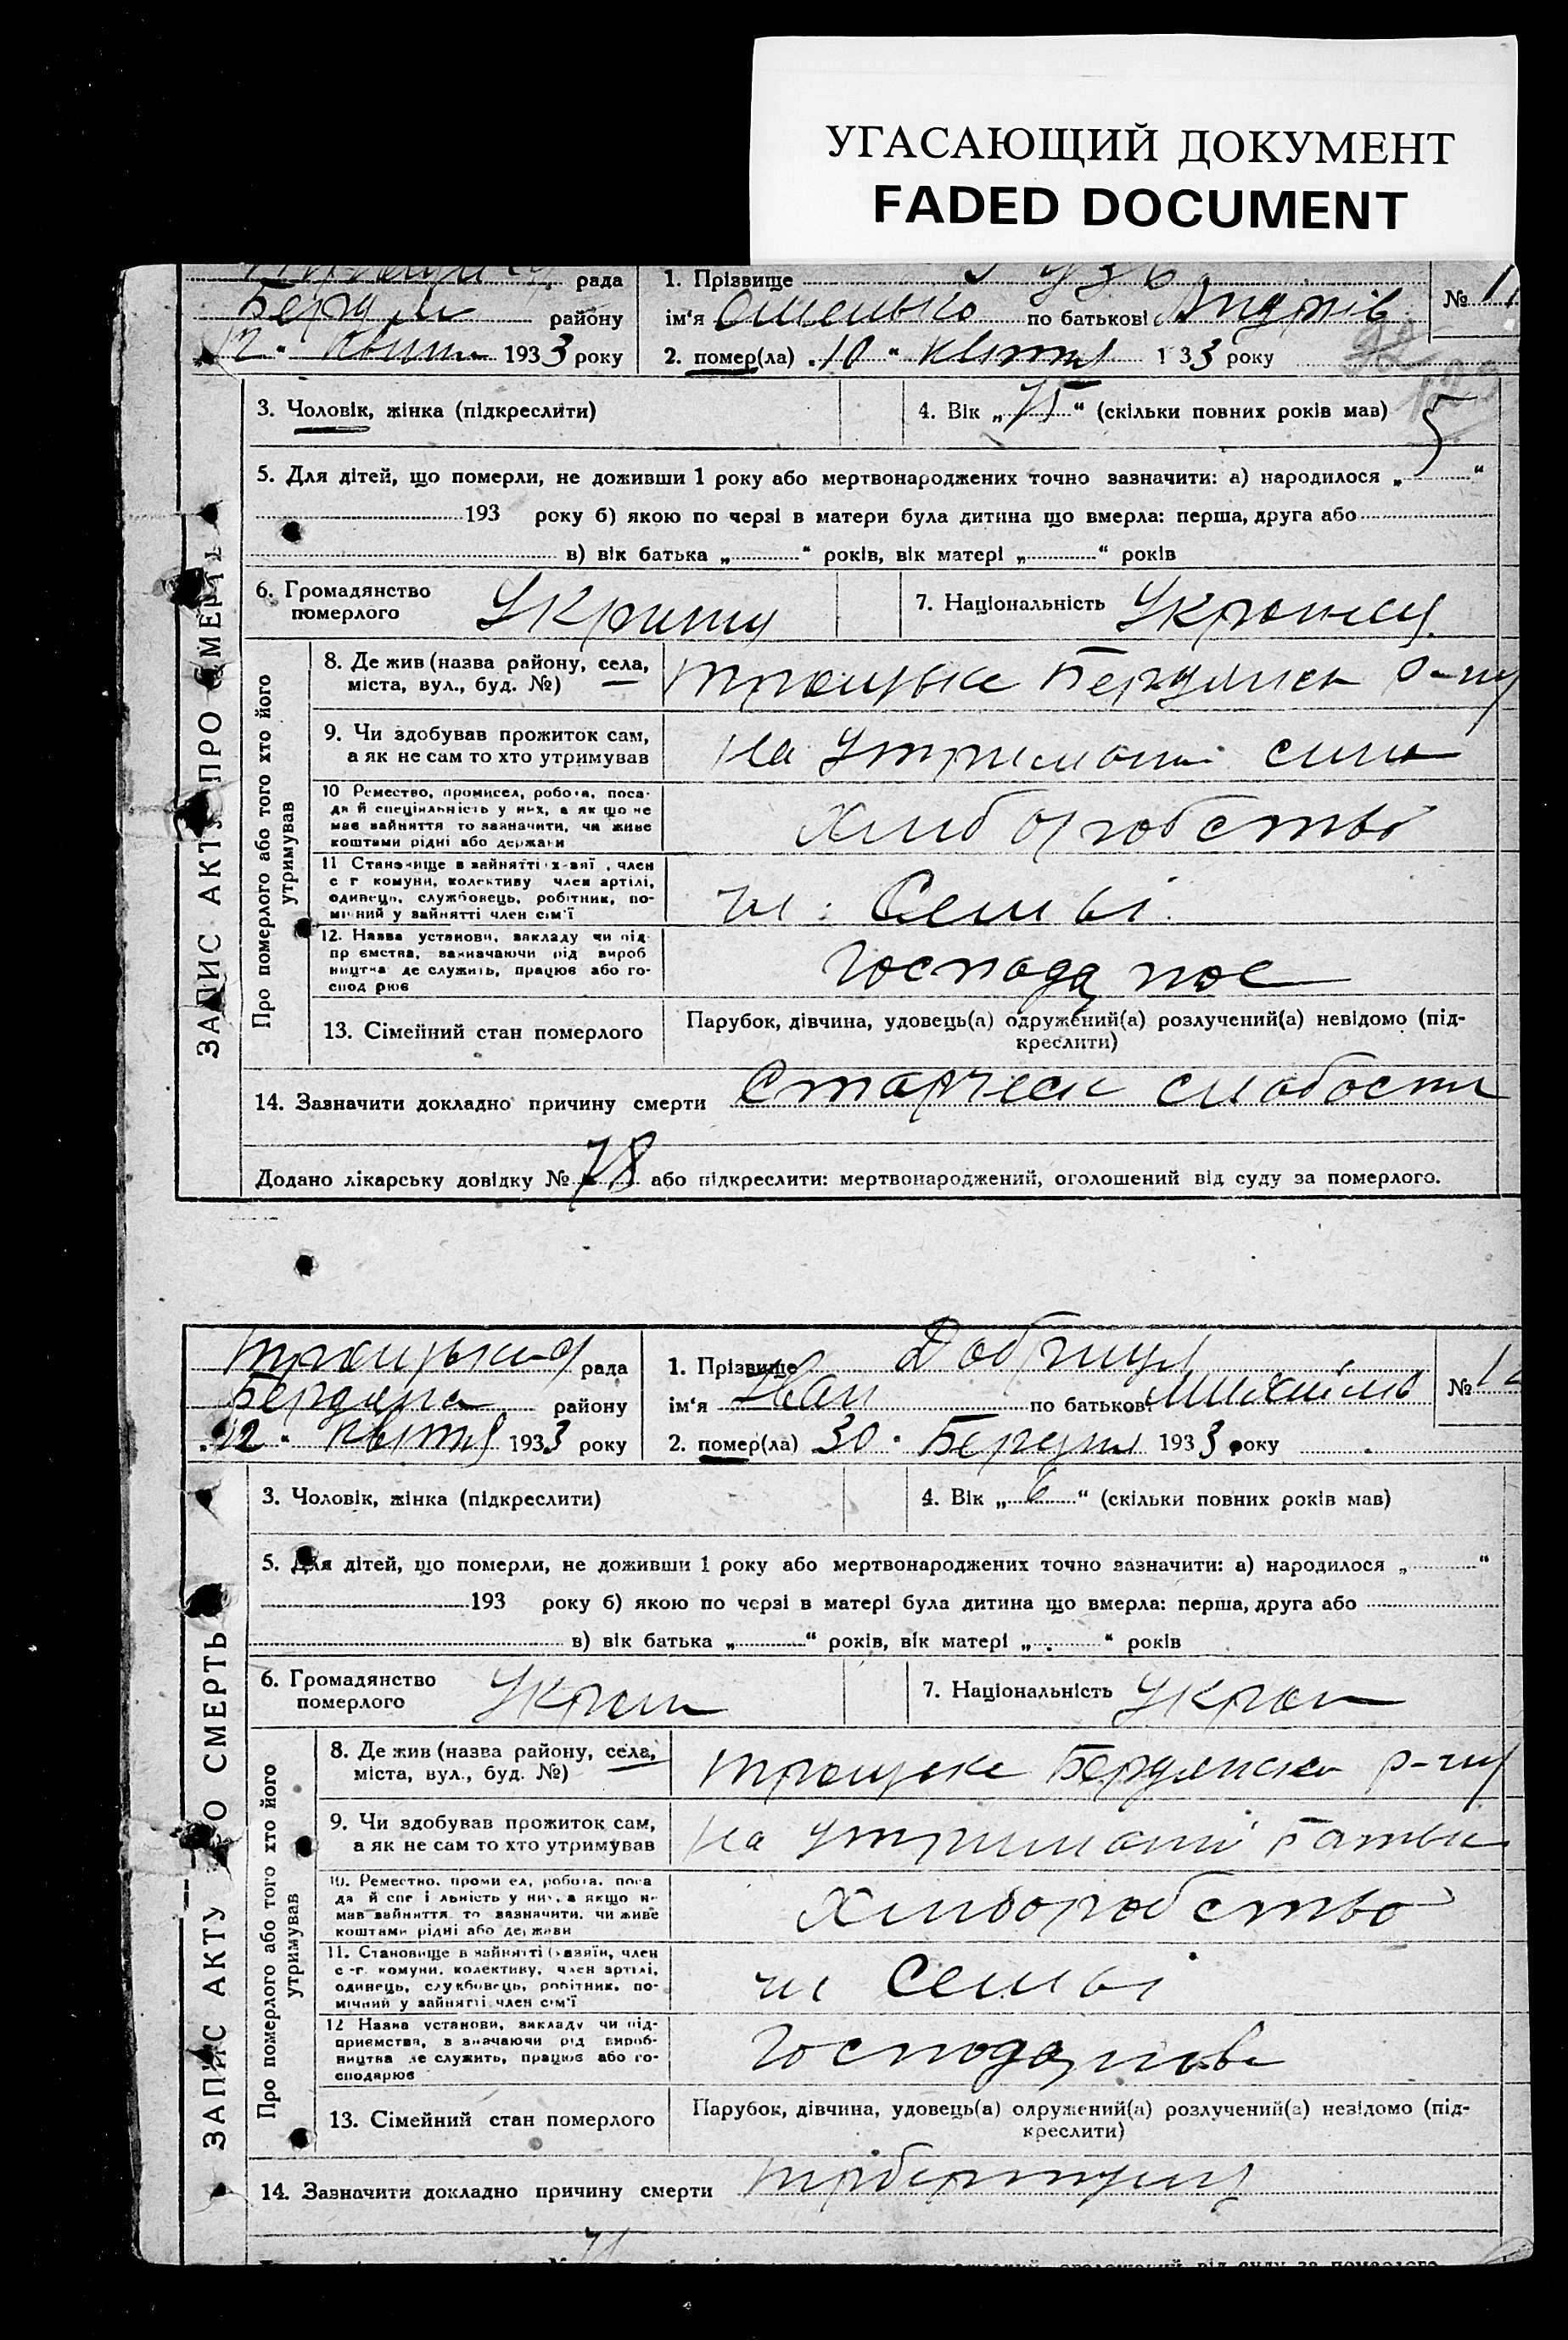 УГАСАЮЩИЙ ДОКУМЕНТ
FADED DOCUMENT
рада
району
12 " 1933 року
1. Прізвище
ім'я Омелько по батькові Андрів
2. помер(ла) 10 " квітня 1 33 року
№ 11
3. Чоловік, жінка (підкреслити)
4. Вік „ 75 “ (скільки повних років мав)
5. Для дітей, що померли, не доживши 1 року або мертвонароджених точно зазначити: а) народилося „ “
193 року б) якою по черзі в матери була дитина що вмерла: перша, друга або
в) вік батька „ “ років, вік матері „ “ років
6. Громадянство
померлого
7. Національність
ЗАПИС АКТУ ПРО СМЕРТЬ
Про померлого або того хто його
утримував
8. Де жив (назва району, села,
міста, вул., буд. №)
Троицьке Бердянськ р-ну
9. Чи здобував прожиток сам,
а як не сам то хто утримував
на утриманні сина
10 Ремество, промисел, робота, поса-
да й спеціяльність у них, а як що не
має зайняття то зазначити, чи живе
коштами рідні або держави
Хліборобство
11 Становище в зайнятті х-зяї , член
с г комуни, колективу член артілі,
одинець, службовець, робітник, по-
мічний у зайнятті член сім'ї
чл. Семьі
12. Назва установи, закладу чи під
пр ємства, зазначаючи рід вироб
ництва де служить, працює або го-
спод рює
13. Сімейний стан померлого
Парубок, дівчина, удовець(а) одружений(а) розлучений(а) невідомо (під-
креслити)
14. Зазначити докладно причину смерти Старческ слабости
Додано лікарську довідку № 78 або підкреслити: мертвонароджений, оголошений від суду за померлого.
Троицька рада
Бердянс району
12 " квітня 1933 року
1. Прізвище
ім'я Іван по батькові Михайлів
2. помер(ла) 30 " Березня 1933 року
№
3. Чоловік, жінка (підкреслити)
4. Вік „ 6 “ (скільки повних років мав)
5. Для дітей, що померли, не доживши 1 року або мертвонароджених точно зазначити: а) народилося „ “
193 року б) якою по черзі в матері була дитина що вмерла: перша, друга або
в) вік батька „ “ років, вік матері „ “ років
6. Громадянство
померлого
Украи
7. Національність Украи
ЗАПИС АКТУ ПРО СМЕРТЬ
Про померлого або того хто його
утримував
8. Де жив (назва району, села,
міста, вул., буд. №)
Троицьке Бердянськ р-ну
9. Чи здобував прожиток сам,
а як не сам то хто утримував
на утриманні батьки
10. Реместно, проми ел, робота, поса
да й спе і льність у них, а якщо н-
має зайняття то зазначити, чи живе
коштами рідні або держави
Хліборобство
11. Становище в зайнятті (хазяїн, член
с -г. комуни, колективу, член артілі,
одинець, службовець, робітник, по-
мічний у зайнятті член сім'ї
чл Семьі
12 Назва установи, закладу чи під-
приємства, з значаючи рід вироб-
ництва де служить, працює або го-
сподарює
13. Сімейний стан померлого
Парубок, дівчина, удовець(а) одружений(а) розлучений(а) незідомо (під-
креслити)
14. Зазначити докладно причину смерти